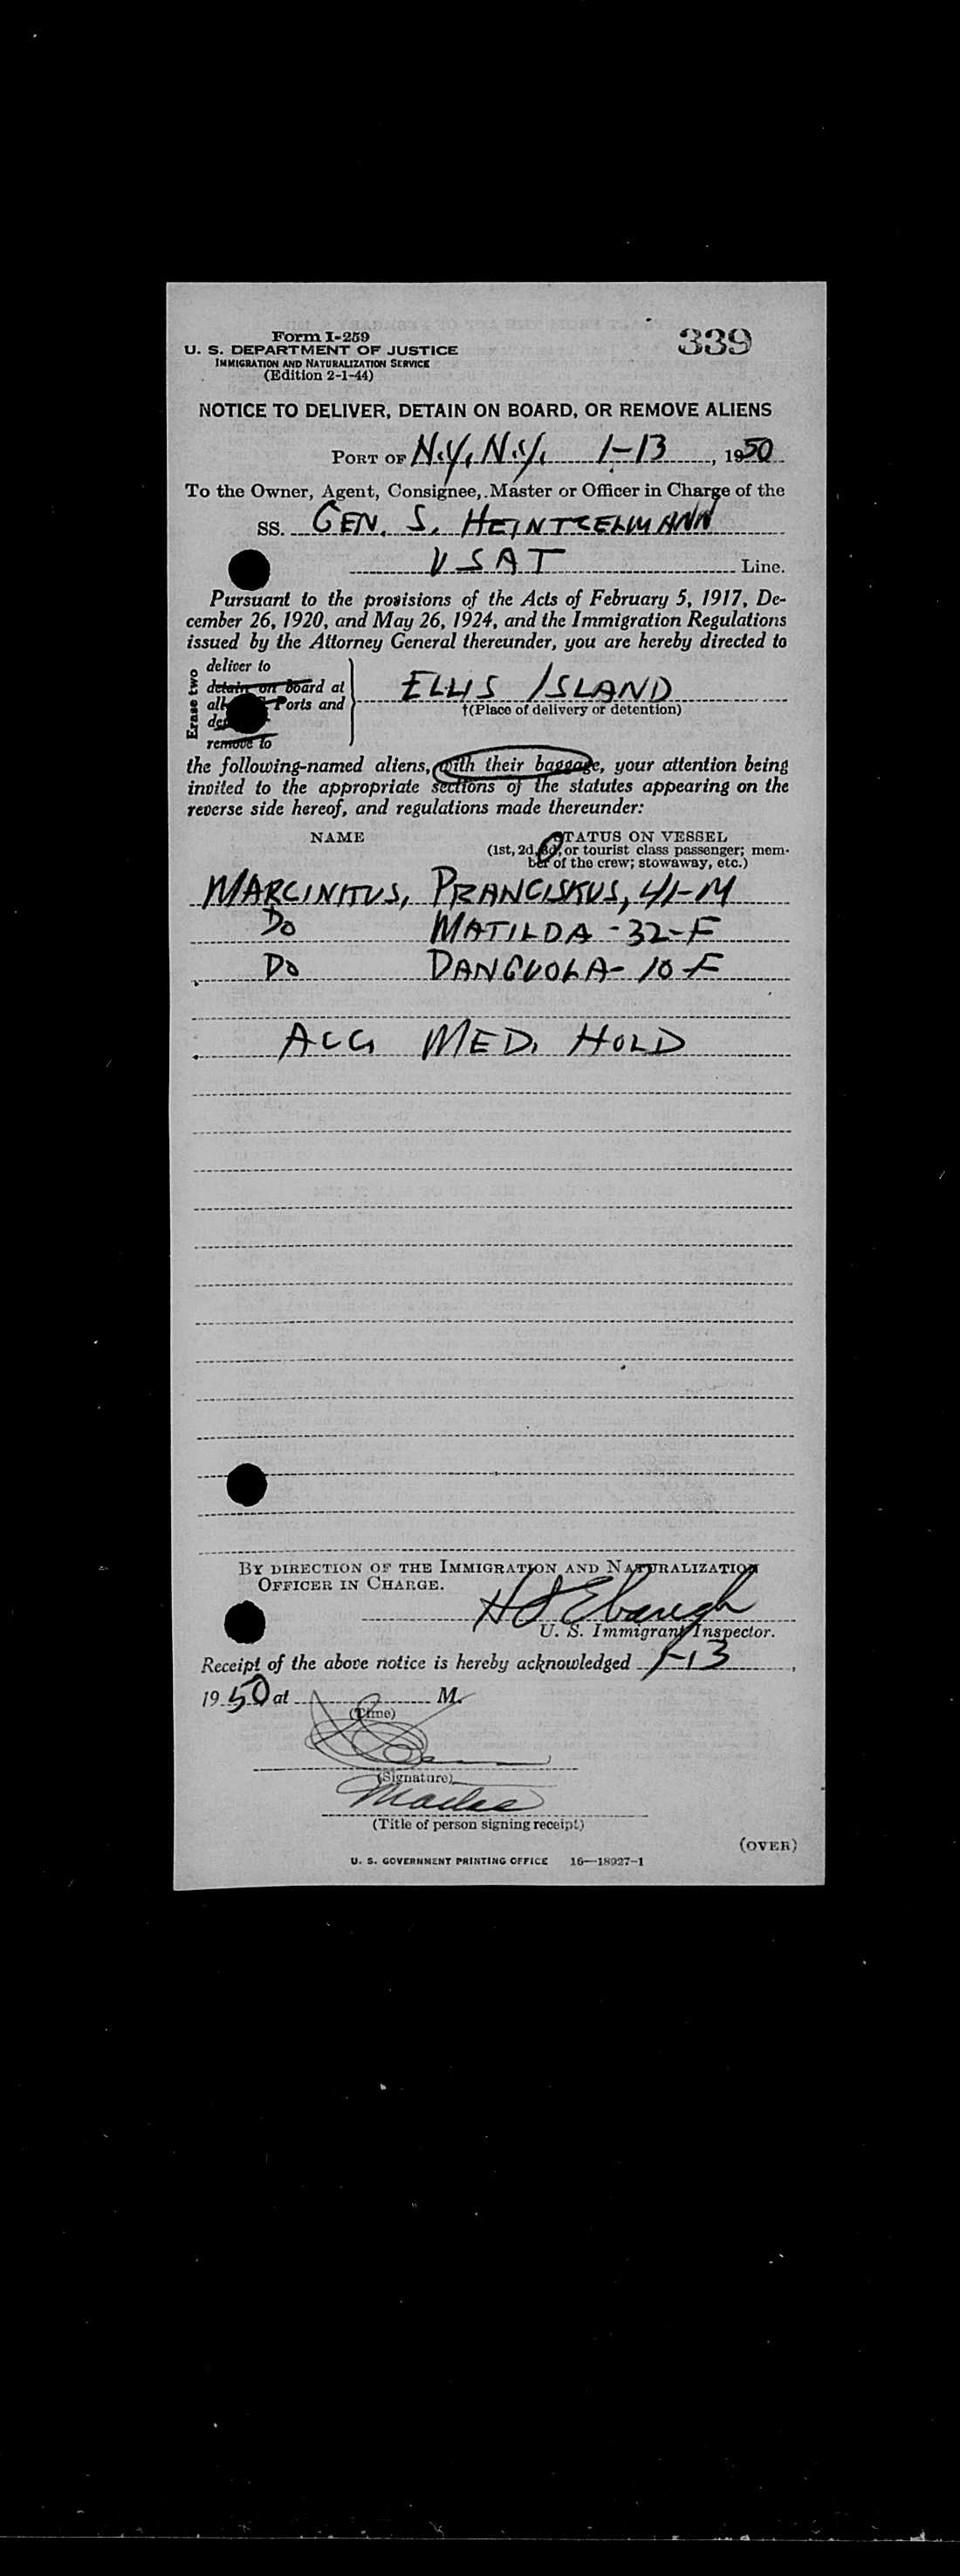 Form I-259
U. S. DEPARTMENT OF JUSTICE
IMMIGRATION AND NATURALIZATION SERVICE
(Edition 2-1-44)
339
NOTICE TO DELIVER, DETAIN ON BOARD, OR REMOVE ALIENS
PORT OF N.Y., N.Y. 1-13, 1950
To the Owner, Agent, Consignee, Master or Officer in Charge of the
SS. GEN. S. HEINTSELMANN
USAT Line.
Pursuant to the provisions of the Acts of February 5, 1917, De-
cember 26, 1920, and May 26, 1924, and the Immigration Regulations
issued by the Attorney General thereunder, you are hereby directed to
Erase two
deliver to
detain on board at
all Ports and
remove to
ELLIS ISLAND
†(Place of delivery or detention)
the following-named aliens, with their baggage, your attention being
invited to the appropriate sections of the statutes appearing on the
reverse side hereof, and regulations made thereunder:
NAME
STATUS ON VESSEL
(1st, 2d, 3d, or tourist class passenger; mem-
ber of the crew; stowaway, etc.)
MARCINITUS, PRANCISKUS, 41-M
DO MATILDA - 32-F
DO DANGUOLA - 10-F
ACC MED. HOLD
BY DIRECTION OF THE IMMIGRATION AND NATURALIZATION
OFFICER IN CHARGE.
H Ebaugh
U. S. Immigrant Inspector.
Receipt of the above notice is hereby acknowledged 1-13,
1950 at M.
(Time)
(Signature)
(Title of person signing receipt)
(OVER)
U. S. GOVERNMENT PRINTING OFFICE 16—18927-1